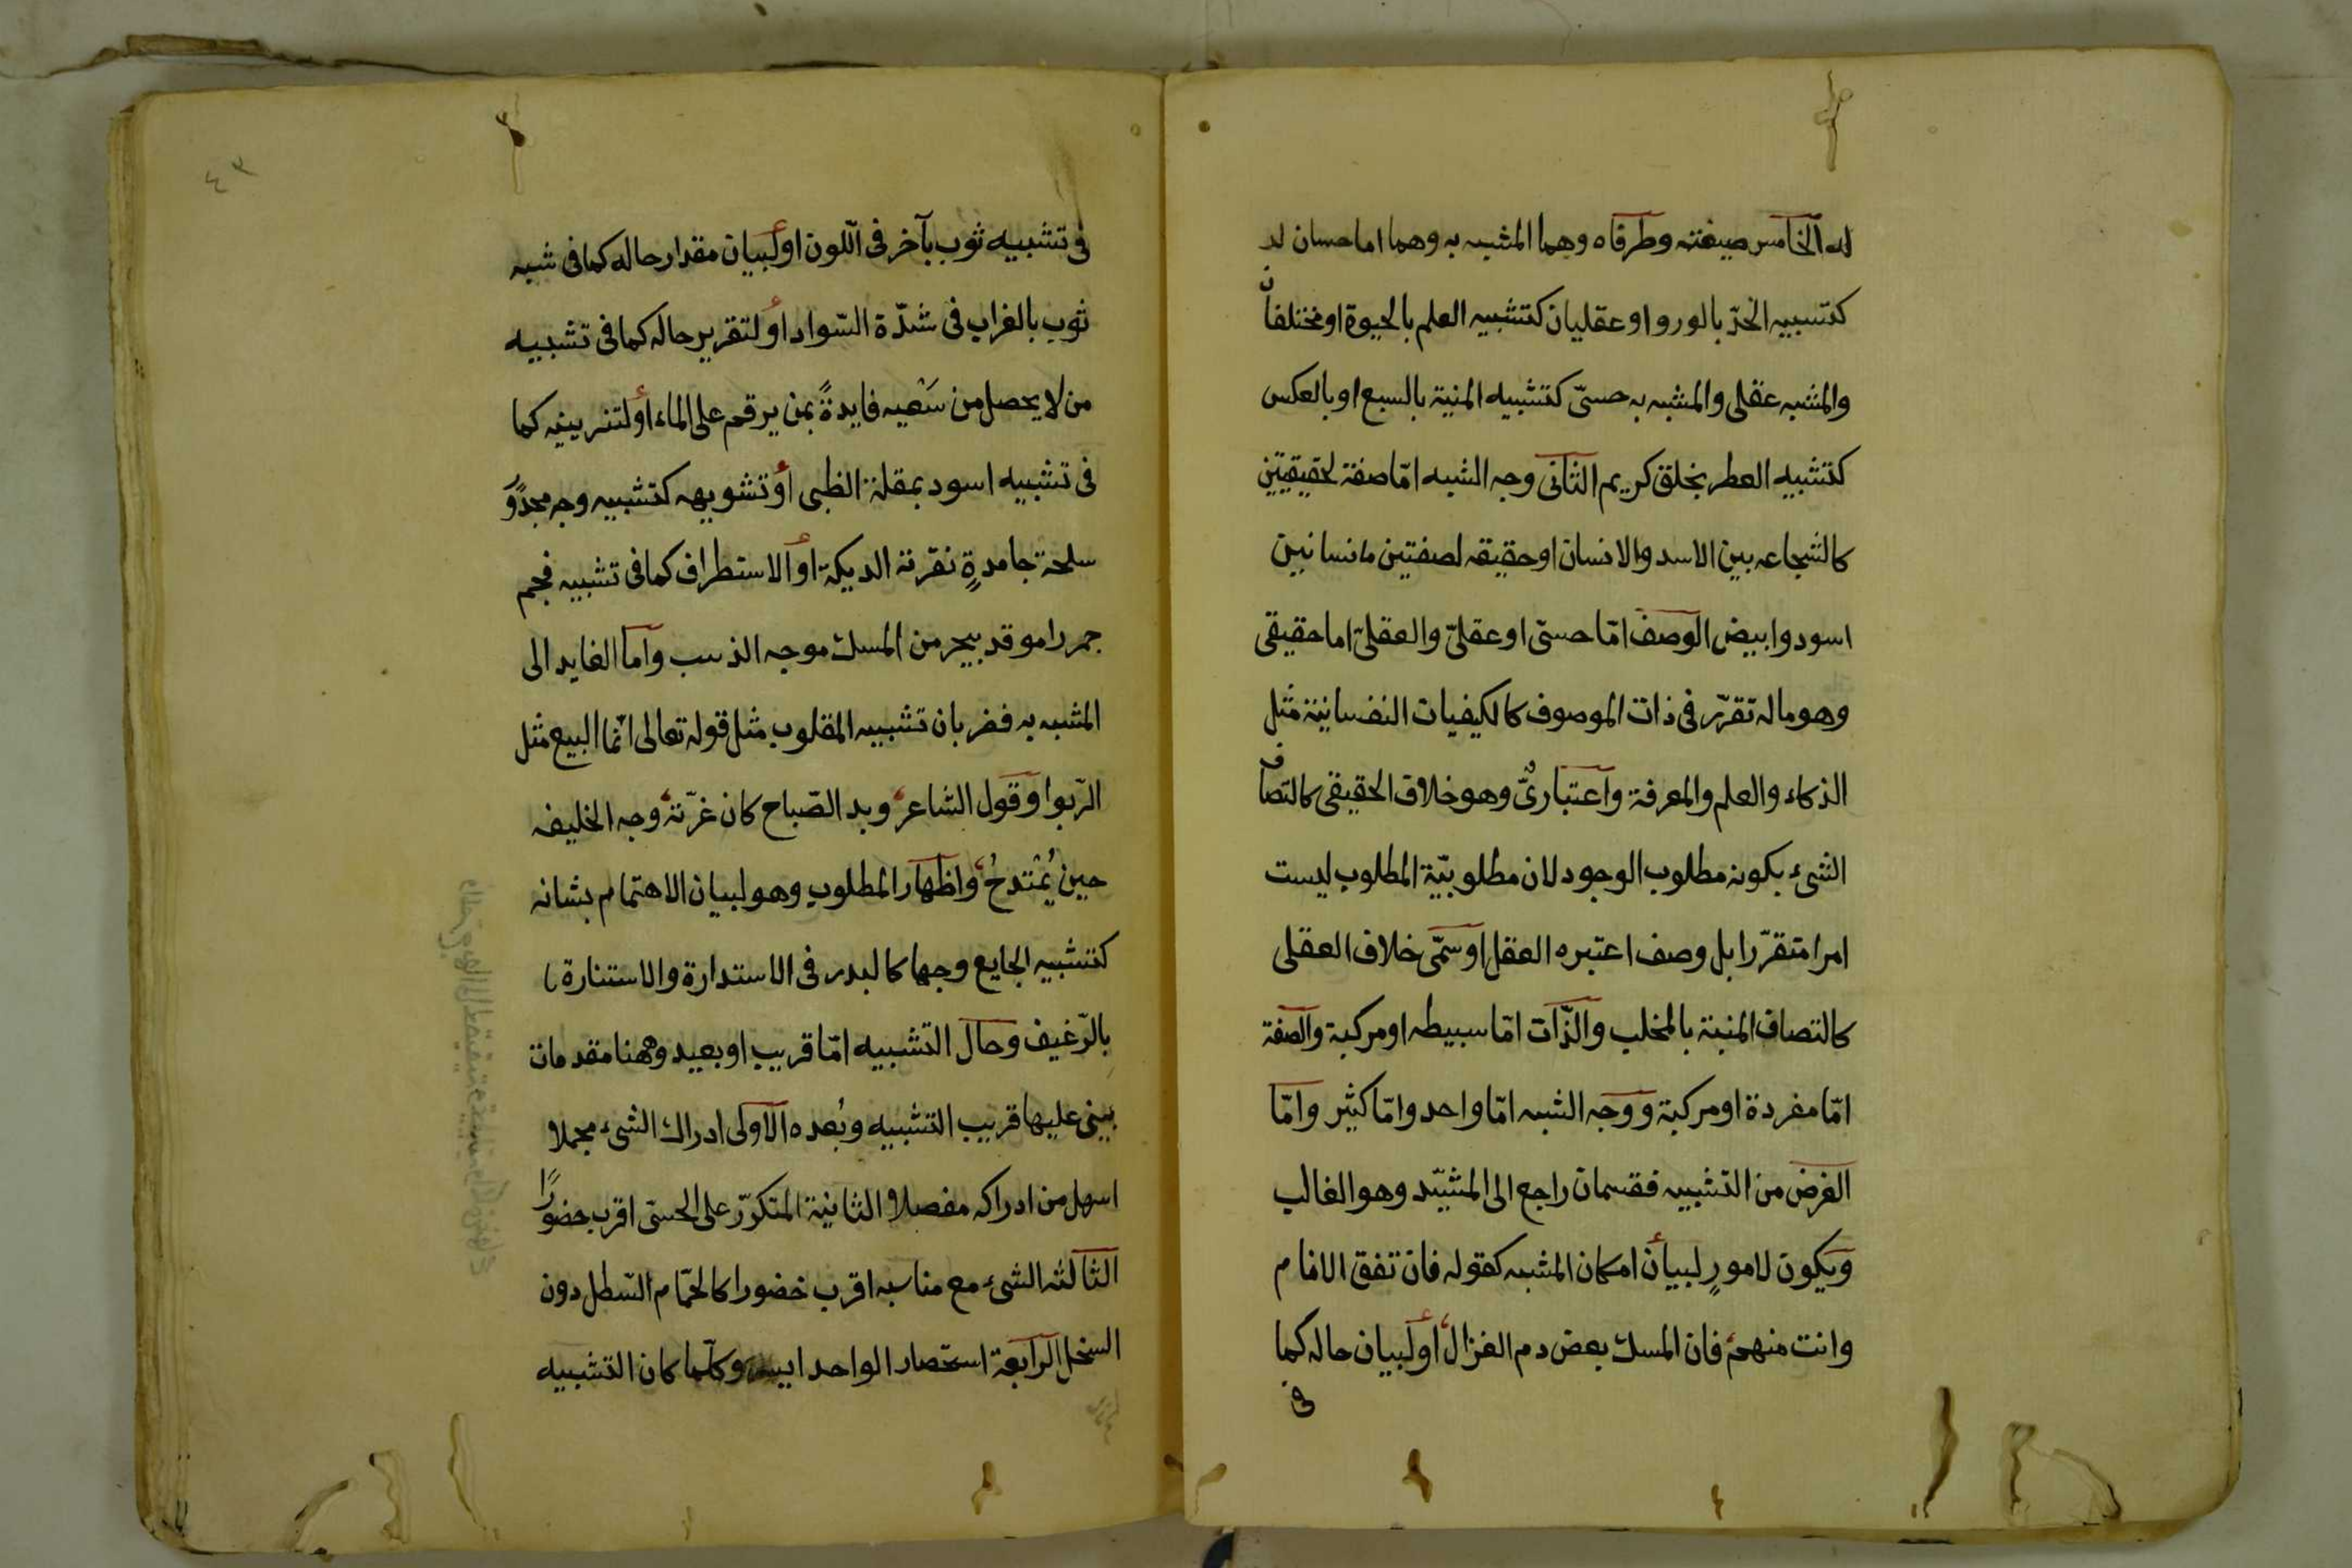 له الخامس صيغته وطرفاه وهما المشبه به وهما اما حسان لد
كتسبيه الخدّ بالورو او عقليان كتشبيه العلم بالحيوة او مختلفان
والمشبه عقلى والمشبه به حسىّ كتشبيه المنية بالسبع او بالعكس
كتشبيه العطر بخلق كريم الثانى وجه الشبه امّا صفة لحقيقيتين
كالشجاعه بين الاسد والانسان او حقيقه لصفتين مانسانين
اسود وابيض الوصف امّا حسىّ او عقلىّ والعقلىّ اما حقيقى
وهو ماله تقرّر فى ذات الموصوف كالكيفيات النفسانية مثل
الذكاء والعلم والمعرفة واعتبارىٌّ وهو خلاف الحقيقى كالتصاف
الشىء بكونه مطلوب الوجود لان مطلوبيّة المطلوب ليست
امرا متقرّرا بل وصف اعتبره العقل او سمّى خلاف العقلى
كالتصاف المنية بالمخلب والذّات امّا سبيطه او مركبة والصفة
امّا مفردة او مركبة ووجه الشبه امّا واحد وامّا كثير وامّا
الغرض من التشبيه فقسمان راجع الى المشبّه وهو الغالب
ويكون لامورٍ لبيان امكان المشبه كقوله فان تفق الانام
وانت منهم فان المسك بعض دم الغزال او لبيان حاله كما
فى
٤٣
فى تشبيه ثوب بآخر فى اللّون او لبيان مقدار حاله كما فى شبه
ثوب بالغراب فى شدّة السّواد او لتقرير حاله كما فى تشبيه
من لا يحصل من سَعْيه فايدةً بمن يرقم على الماء او لتزيينه كما
فى تشبيه اسود بمقلة الظبى او تشويهه كتشبيه وجه مجدّوَ
سلحة جامدةٍ نقرته الديكة او الاستطراف كما فى تشبيه فحم
جمر را موقد ببحر من المسك موجه الذهب واما العايد الى
المشبه به فضربان تشبيه المقلوب مثل قوله تعالى انّما البيع مثل
الرّبوا وقول الشاعر وبد الصّباح كان غرّته وجه الخليفه
حين يُمْتدحُ واظهار المطلوب وهو لبيان الاهتمام بشانه
كتشبيه الجايع وجها كالبدر فى الاستدارة والاستنارة
بالرّغيف وحال التشبيه امّا قريب او بعيد وههنا مقدمات
يبنى عليها قريب التشبيه وبُعده الاولى ادراك الشىء مجملا
اسهل من ادراكه مفصلا والثانية المتكرّر على الحسىّ اقرب حضورًا
الثالثه الشىء مع مناسبه اقرب خضورا كالحمّام السّطل دون
السخل الرابعة استحصار الواحد ايسر وكلّما كان التشبيه